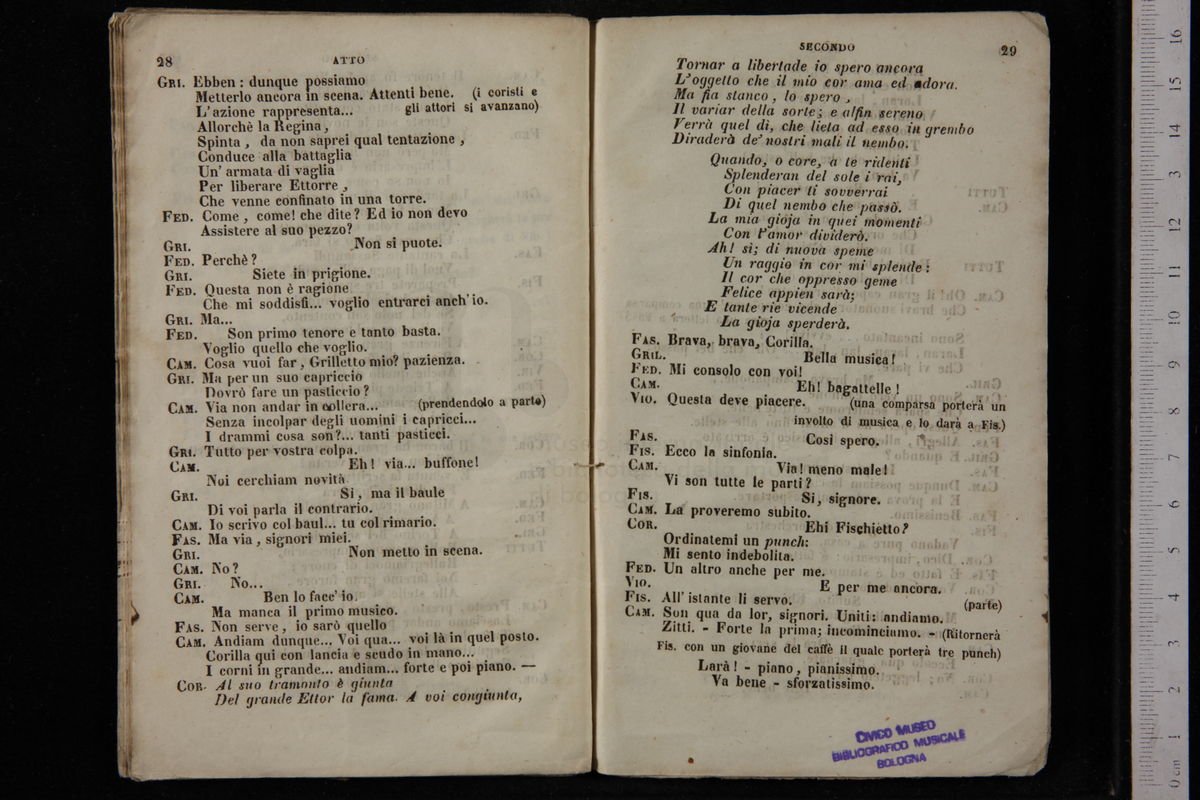 28 ATTO
GRI. Ebben : dunque possiamo
Metterlo ancora in scena. Attenti bene. (i coristi e
L'azione rappresenta... gli attori si avanzano)
Allorchè la Regina,
Spinta, da non saprei qual tentazione,
Conduce alla battaglia
Un' armata di vaglia
Per liberare Ettorre,
Che venne confinato in una torre.
FED. Come, come! che dite? Ed io non devo
Assistere al suo pezzo?
GRI. Non si puote.
FED. Perchè?
GRI. Siete in prigione.
FED. Questa non è ragione
Che mi soddisfi... voglio entrarci anch' io.
GRI. Ma...
FED. Son primo tenore e tanto basta.
Voglio quello che voglio.
CAM. Cosa vuoi far, Grilletto mio? pazienza.
GRI. Ma per un suo capriccio
Dovrò fare un pasticcio?
CAM. Via non andar in collera... (prendendolo a parte)
Senza incolpar degli uomini i capricci...
I drammi cosa son?... tanti pasticci.
GRI. Tutto per vostra colpa.
CAM. Eh! via... buffone!
Noi cerchiam novità
GRI. Si, ma il baule
Di voi parla il contrario.
CAM. Io scrivo col baul... tu col rimario.
FAS. Ma via, signori miei.
GRI. Non metto in scena.
CAM. No?
GRI. No...
CAM. Ben lo facc' io.
Ma manca il primo musico.
FAS. Non serve, io sarò quello
CAM. Andiam dunque... Voi qua... voi là in quel posto.
Corilla qui con lancia e scudo in mano...
I corni in grande... andiam... forte e poi piano. —
COR. Al suo tramonto è giunta
Del grande Ettor la fama. A voi congiunta,
SECONDO 29
Tornar a libertade io spero ancora
L'oggetto che il mio cor ama ed adora.
Ma fia stanco, lo spero,
Il variar della sorte; e alfin sereno
Verrà quel dì, che lieta ad esso in grembo
Diraderà de' nostri mali il nembo.
Quando, o core, a te ridenti
Splenderan del sole i rai,
Con piacer ti sovverrai
Di quel nembo che passò.
La mia gioja in quei momenti
Con t'amor dividerò.
Ah! sì; di nuova speme
Un raggio in cor mi splende:
Il cor che oppresso geme
Felice appien sarà;
E tante rie vicende
La gioja sperderà.
FAS. Brava, brava, Corilla.
GRIL. Bella musica!
FED. Mi consolo con voi!
CAM. Eh! bagattelle!
VIO. Questa deve piacere. (una comparsa porterà un
involto di musica e lo darà a Fis.)
FAS. Così spero.
FIS. Ecco la sinfonia.
CAM. Via! meno male!
Vi son tutte le parti?
FIS. Si, signore.
CAM. La proveremo subito.
COR. Ehi Fischietto?
Ordinatemi un punch:
Mi sento indebolita.
FED. Un altro anche per me.
VIO. E per me ancora.
FIS. All' istante li servo. (parte)
CAM. Son qua da lor, signori. Uniti: andiamo.
Zitti. - Forte la prima; incominciamo. - (Ritornerà
Fis. con un giovane del caffè il quale porterà tre punch)
Larà! - piano, pianissimo.
Va bene - sforzatissimo.
CIVICO MUSEO
BIBLIOGRAFICO MUSICALE
BOLOGNA
0 cm 1 2 3 4 5 6 7 8 9 10 11 12 13 14 15 16